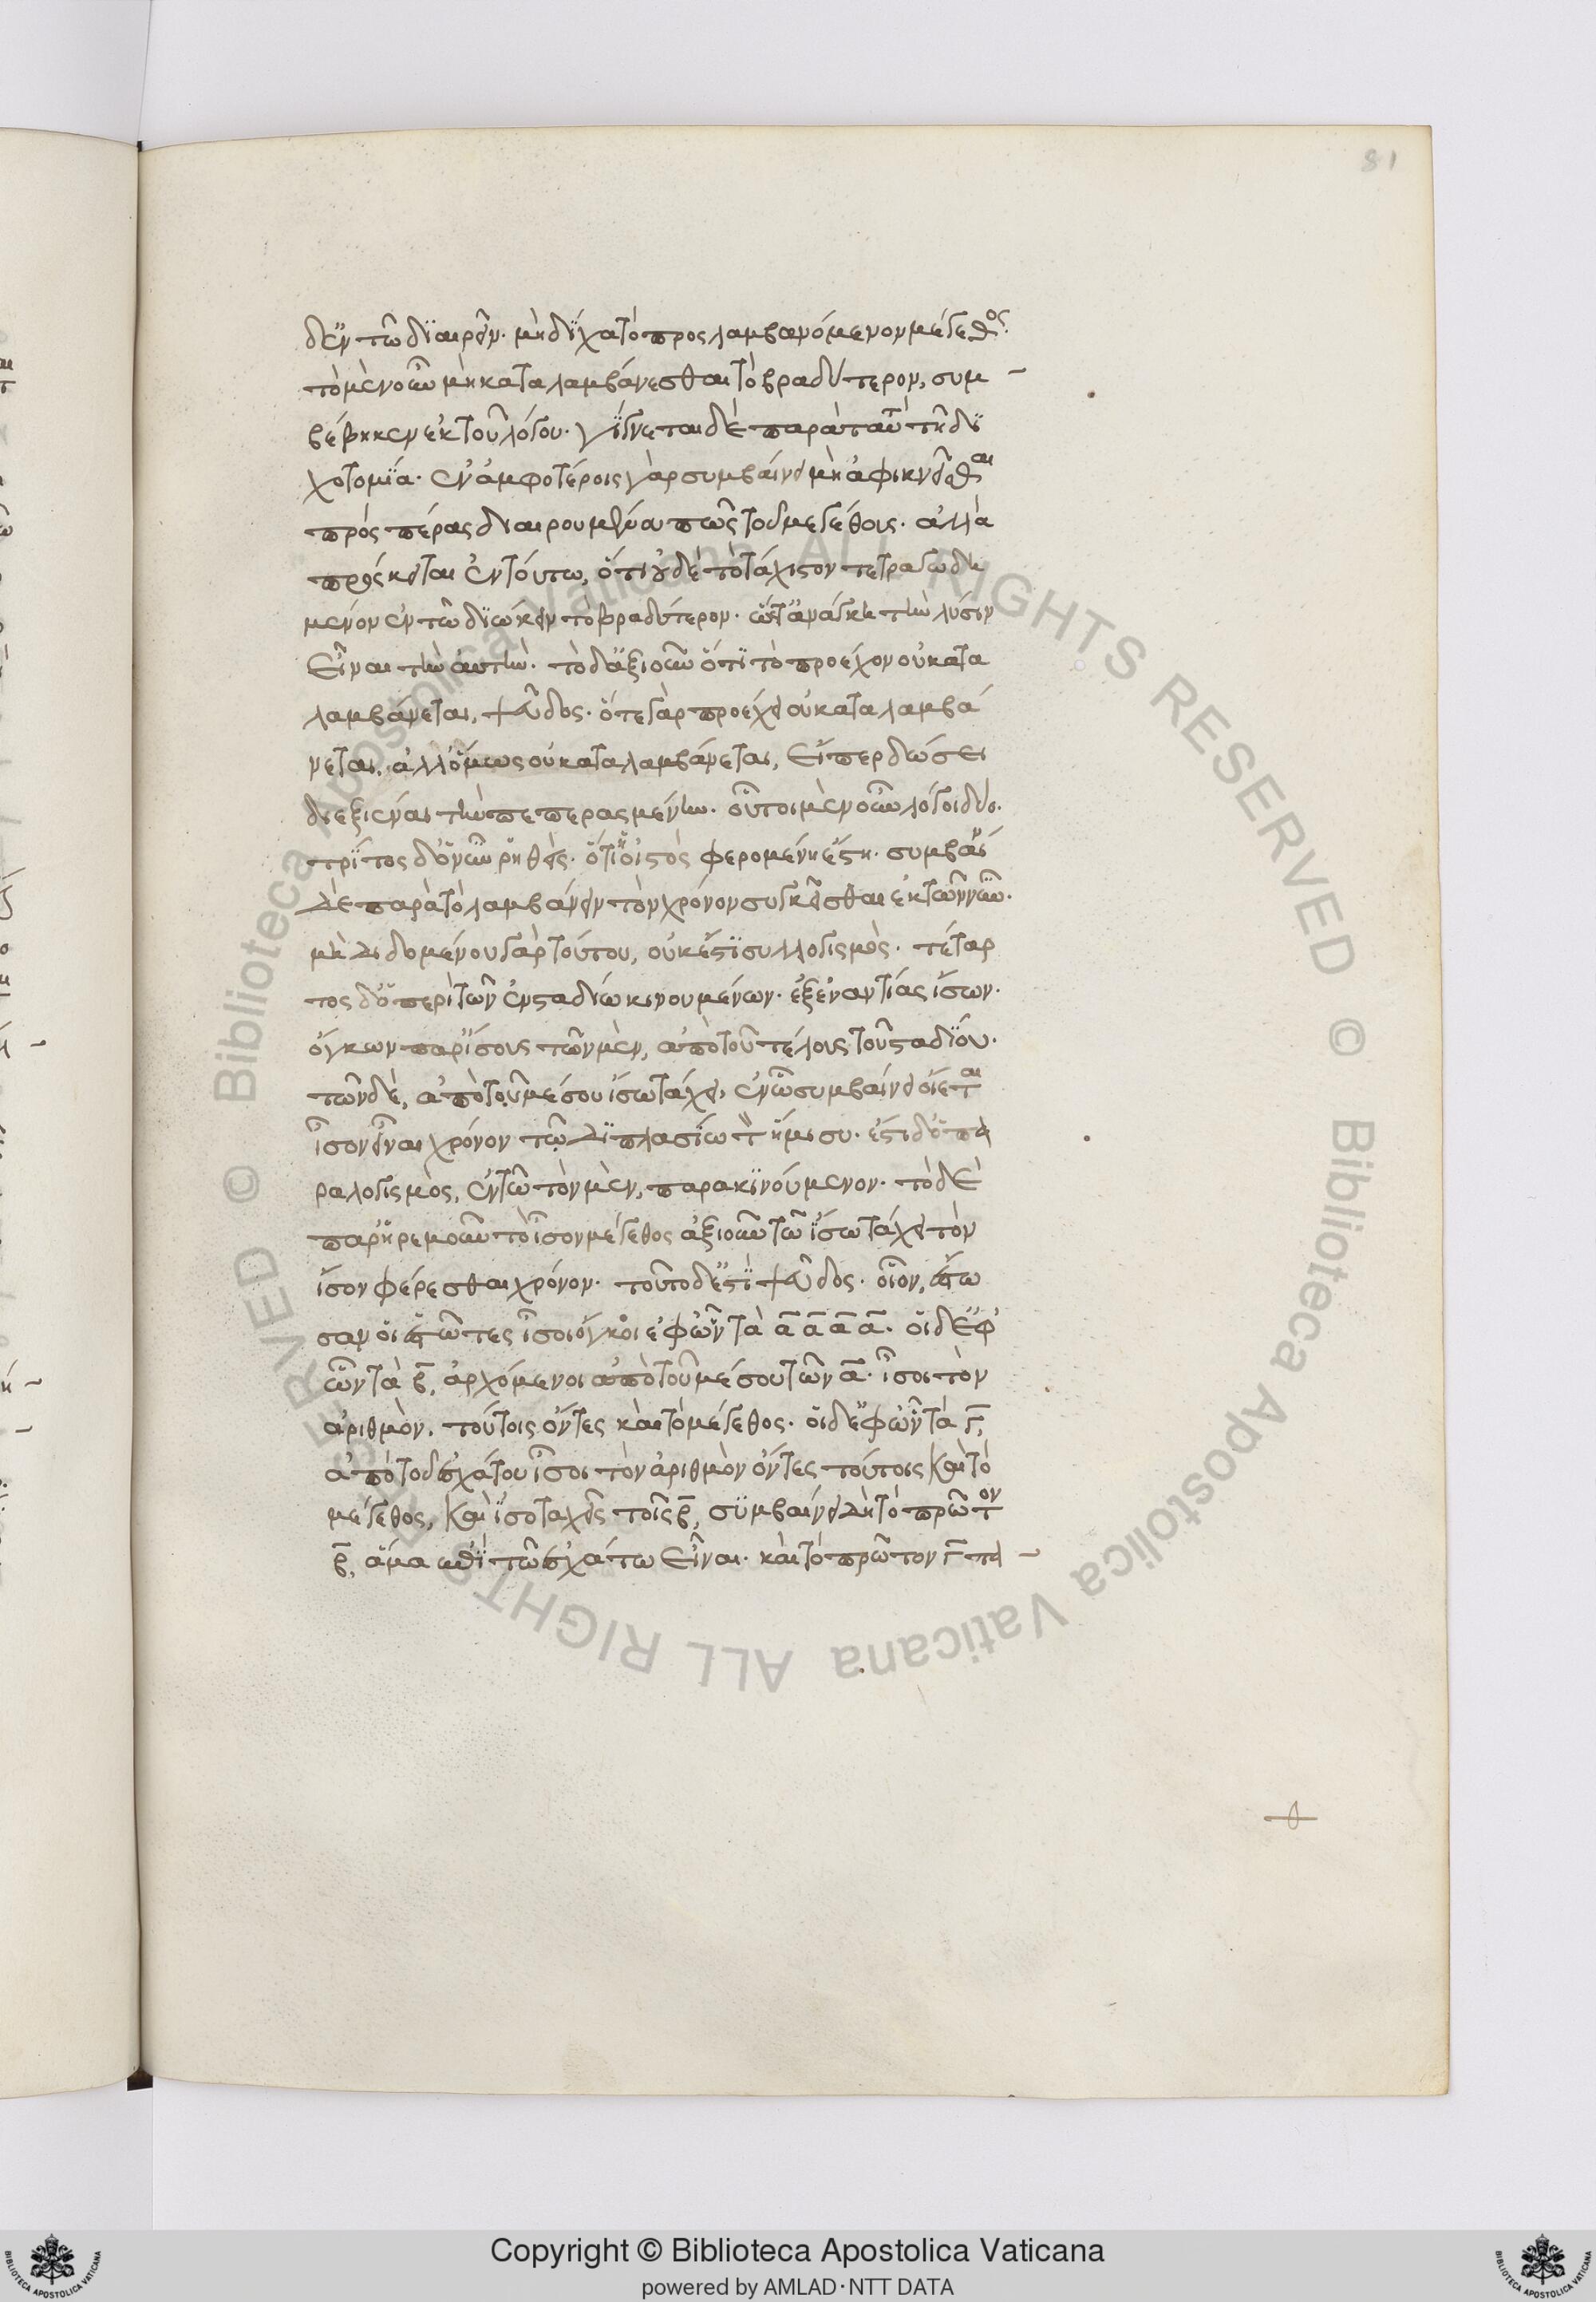 81
δ' ἐν τῶ διαιρεῖν· μὴ δίχα τὸ προσλαμβανόμενον μέγεθος·
τὸ μὲν οὖν μὴ καταλαμβάνεσθαι τὸ βραδύτερον, συμ
βέβηκεν ἐκ τοῦ λόγου· γίγνεται δὲ παρὰ ταυτὸ τῆ δι
χοτομία· ἐν ἀμφοτέροις γὰρ συμβαίνει μὴ ἀφικνεῖσθαι
πρὸς πέρας διαιρουμένου πως τοῦ μεγέθους· ἀλλὰ
πρόσκειται ἐν τούτω, ὅτι οὐδὲ τὸ τάχιστον τετραγωδη
μένον ἐν τῶ διώκειν τὸ βραδύτερον· ὥστ' ἀνάγκη τὴν λύσιν
εἶναι τὴν αὐτήν· τὸ δ' ἀξιοῦν ὅτι τὸ προέχον οὐ κατα
λαμβάνεται, ψεῦδος· ὅτε γὰρ προέχει οὐ καταλαμβά
νεται, ἀλλ' ὅμως οὐ καταλαμβάνεται, εἴπερ δώσει
διεξιέναι τὴν πεπερασμένην· οὗτοι μὲν οὖν λόγοι δύο·
τρίτος δ' ὁ νῦν ῥηθεὶς· ὅτι ἡ ὀϊστὸς φερομένη ἕστηκε· συμβαίνει
δὲ παρὰ τὸ λαμβάνειν τὸν χρόνον συγκεῖσθαι ἐκ τῶν νῦν·
μὴ διδομένου γὰρ τούτου, οὐκ ἔστι συλλογισμὸς· τέταρ
τος δ' ὁ περὶ τῶν ἐν σταδίω κινουμένων· ἐξ ἐναντίας ἴσων·
ὄγκων παρ' ἴσους τῶν μὲν, ἀπὸ τοῦ τέλους τοῦ σταδίου·
τῶν δὲ, ἀπὸ τοῦ μέσου ἴσω τάχει, ἐν ὧ συμβαίνει οἴεται
ἴσον εἶναι χρόνον τῶ διπλασίω τὸν ἥμισυ· ἔστι δ' ὁ πα
ραλογισμὸς, ἐν τῶ τὸν μὲν, παρακινούμενον· τὸ δὲ
παρ' ἠρεμοῦν τὸ ἴσον μέγεθος ἀξιοῦν τῶ ἴσω τάχει τὸν
ἴσον φέρεσθαι χρόνον· τοῦτο δ' ἐστὶ ψεῦδος· οἷον, ἔστω
σαν οἱ ἑστῶτες ἴσοι ὄγκοι ἐφ' ὧν τὰ α α α α· οἱ δ' ἐφ'
ὧν τὰ β, ἀρχόμενοι ἀπὸ τοῦ μέσου τῶν α· ἴσοι τὸν
ἀριθμὸν, τούτοις ὄντες καὶ τὸ μέγεθος· οἱ δ' ἐφ' ὧν τὰ γ,
ἀπὸ τοῦ ἐσχάτου ἴσοι τὸν ἀριθμὸν ὄντες τούτοις καὶ τὸ
μέγεθος, καὶ ἰσοταχεῖς τοῖς β, συμβαίνει δὴ τὸ πρῶτον
β, ἅμα ἐπὶ τῶ ἐσχάτω εἶναι· καὶ τὸ πρῶτον γ
Copyright © Biblioteca Apostolica Vaticana
powered by AMLAD·NTT DATA